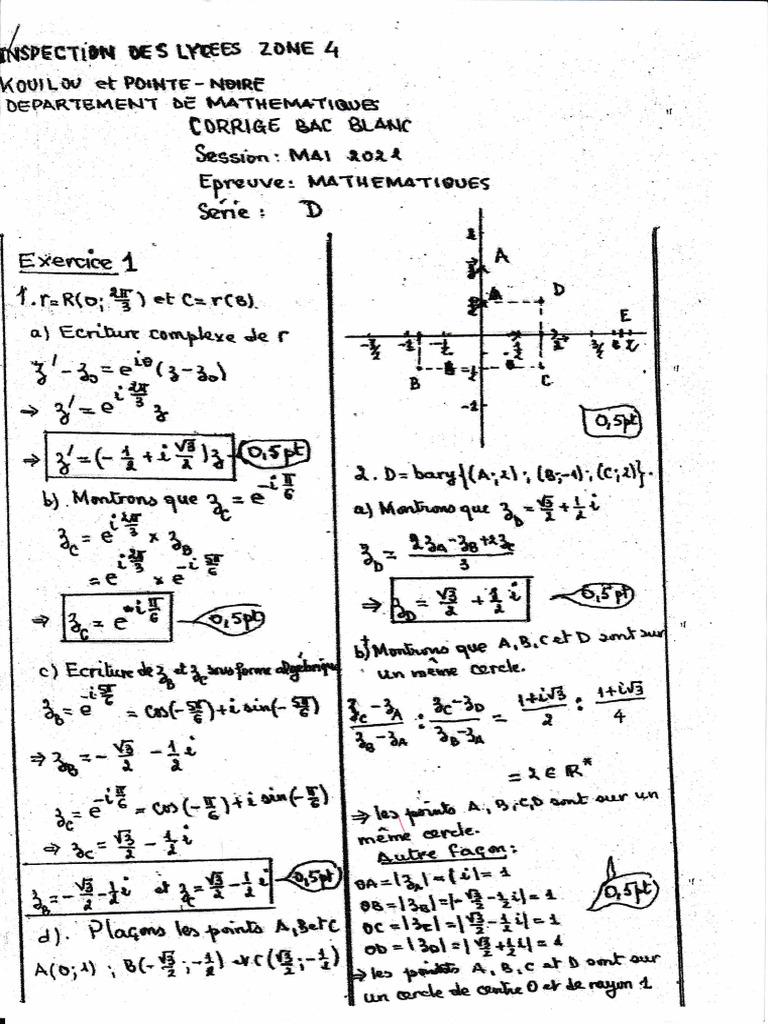 INSPECTION DES LYCEES ZONE 4
KOUILOU et POINTE-NOIRE
DEPARTEMENT DE MATHEMATIQUES
CORRIGE BAC BLANC
Session: MAI 2021
Epreuve: MATHEMATIQUES
Série: D
Exercice 1
1. r=R(0; 2π/3) et C=r(B).
a) Ecriture complexe de r
z'-z₀=e^{iθ}(z-z₀)
⇒ z'=e^{i2π/3}z
⇒ z'=(-1/2+i√3/2)z 0,5pt
b) Montrons que z_C=e^{-iπ/6}
z_C=e^{i2π/3}×z_B
=e^{i2π/3}×e^{-i5π/6}
⇒ z_C=e^{-iπ/6} 0,5pt
c) Ecriture de z_B et z_C sous forme algébrique
z_B=e^{-i5π/6}=cos(-5π/6)+i sin(-5π/6)
⇒ z_B=-√3/2-1/2i
z_C=e^{-iπ/6}=cos(-π/6)+i sin(-π/6)
⇒ z_C=√3/2-1/2i
z_B=-√3/2-1/2i et z_C=√3/2-1/2i 0,5pt
d). Plaçons les points A, B et C
A(0;1); B(-√3/2;-1/2) et C(√3/2;-1/2)
A
D
E
B
C
-1
0,5pt
2. D=bary{(A;2);(B;-1);(C;2)}.
a) Montrons que z_D=√3/2+1/2i
z_D=(2z_A-z_B+2z_C)/3
⇒ z_D=√3/2+1/2i 0,5pt
b) Montrons que A,B,C et D sont sur
un même cercle.
(z_C-z_A)/(z_B-z_A) : (z_C-z_D)/(z_B-z_A) = (1+i√3)/2 : (1+i√3)/4
=2∈ℝ*
⇒ les points A,B,C,D sont sur un
même cercle.
Autre façon:
OA=|z_A|=|i|=1
OB=|z_B|=|-√3/2-1/2i|=1
OC=|z_C|=|√3/2-1/2i|=1
OD=|z_D|=|√3/2+1/2i|=1
0,5pt
⇒ les points A, B, C et D sont sur
un cercle de centre O et de rayon 1